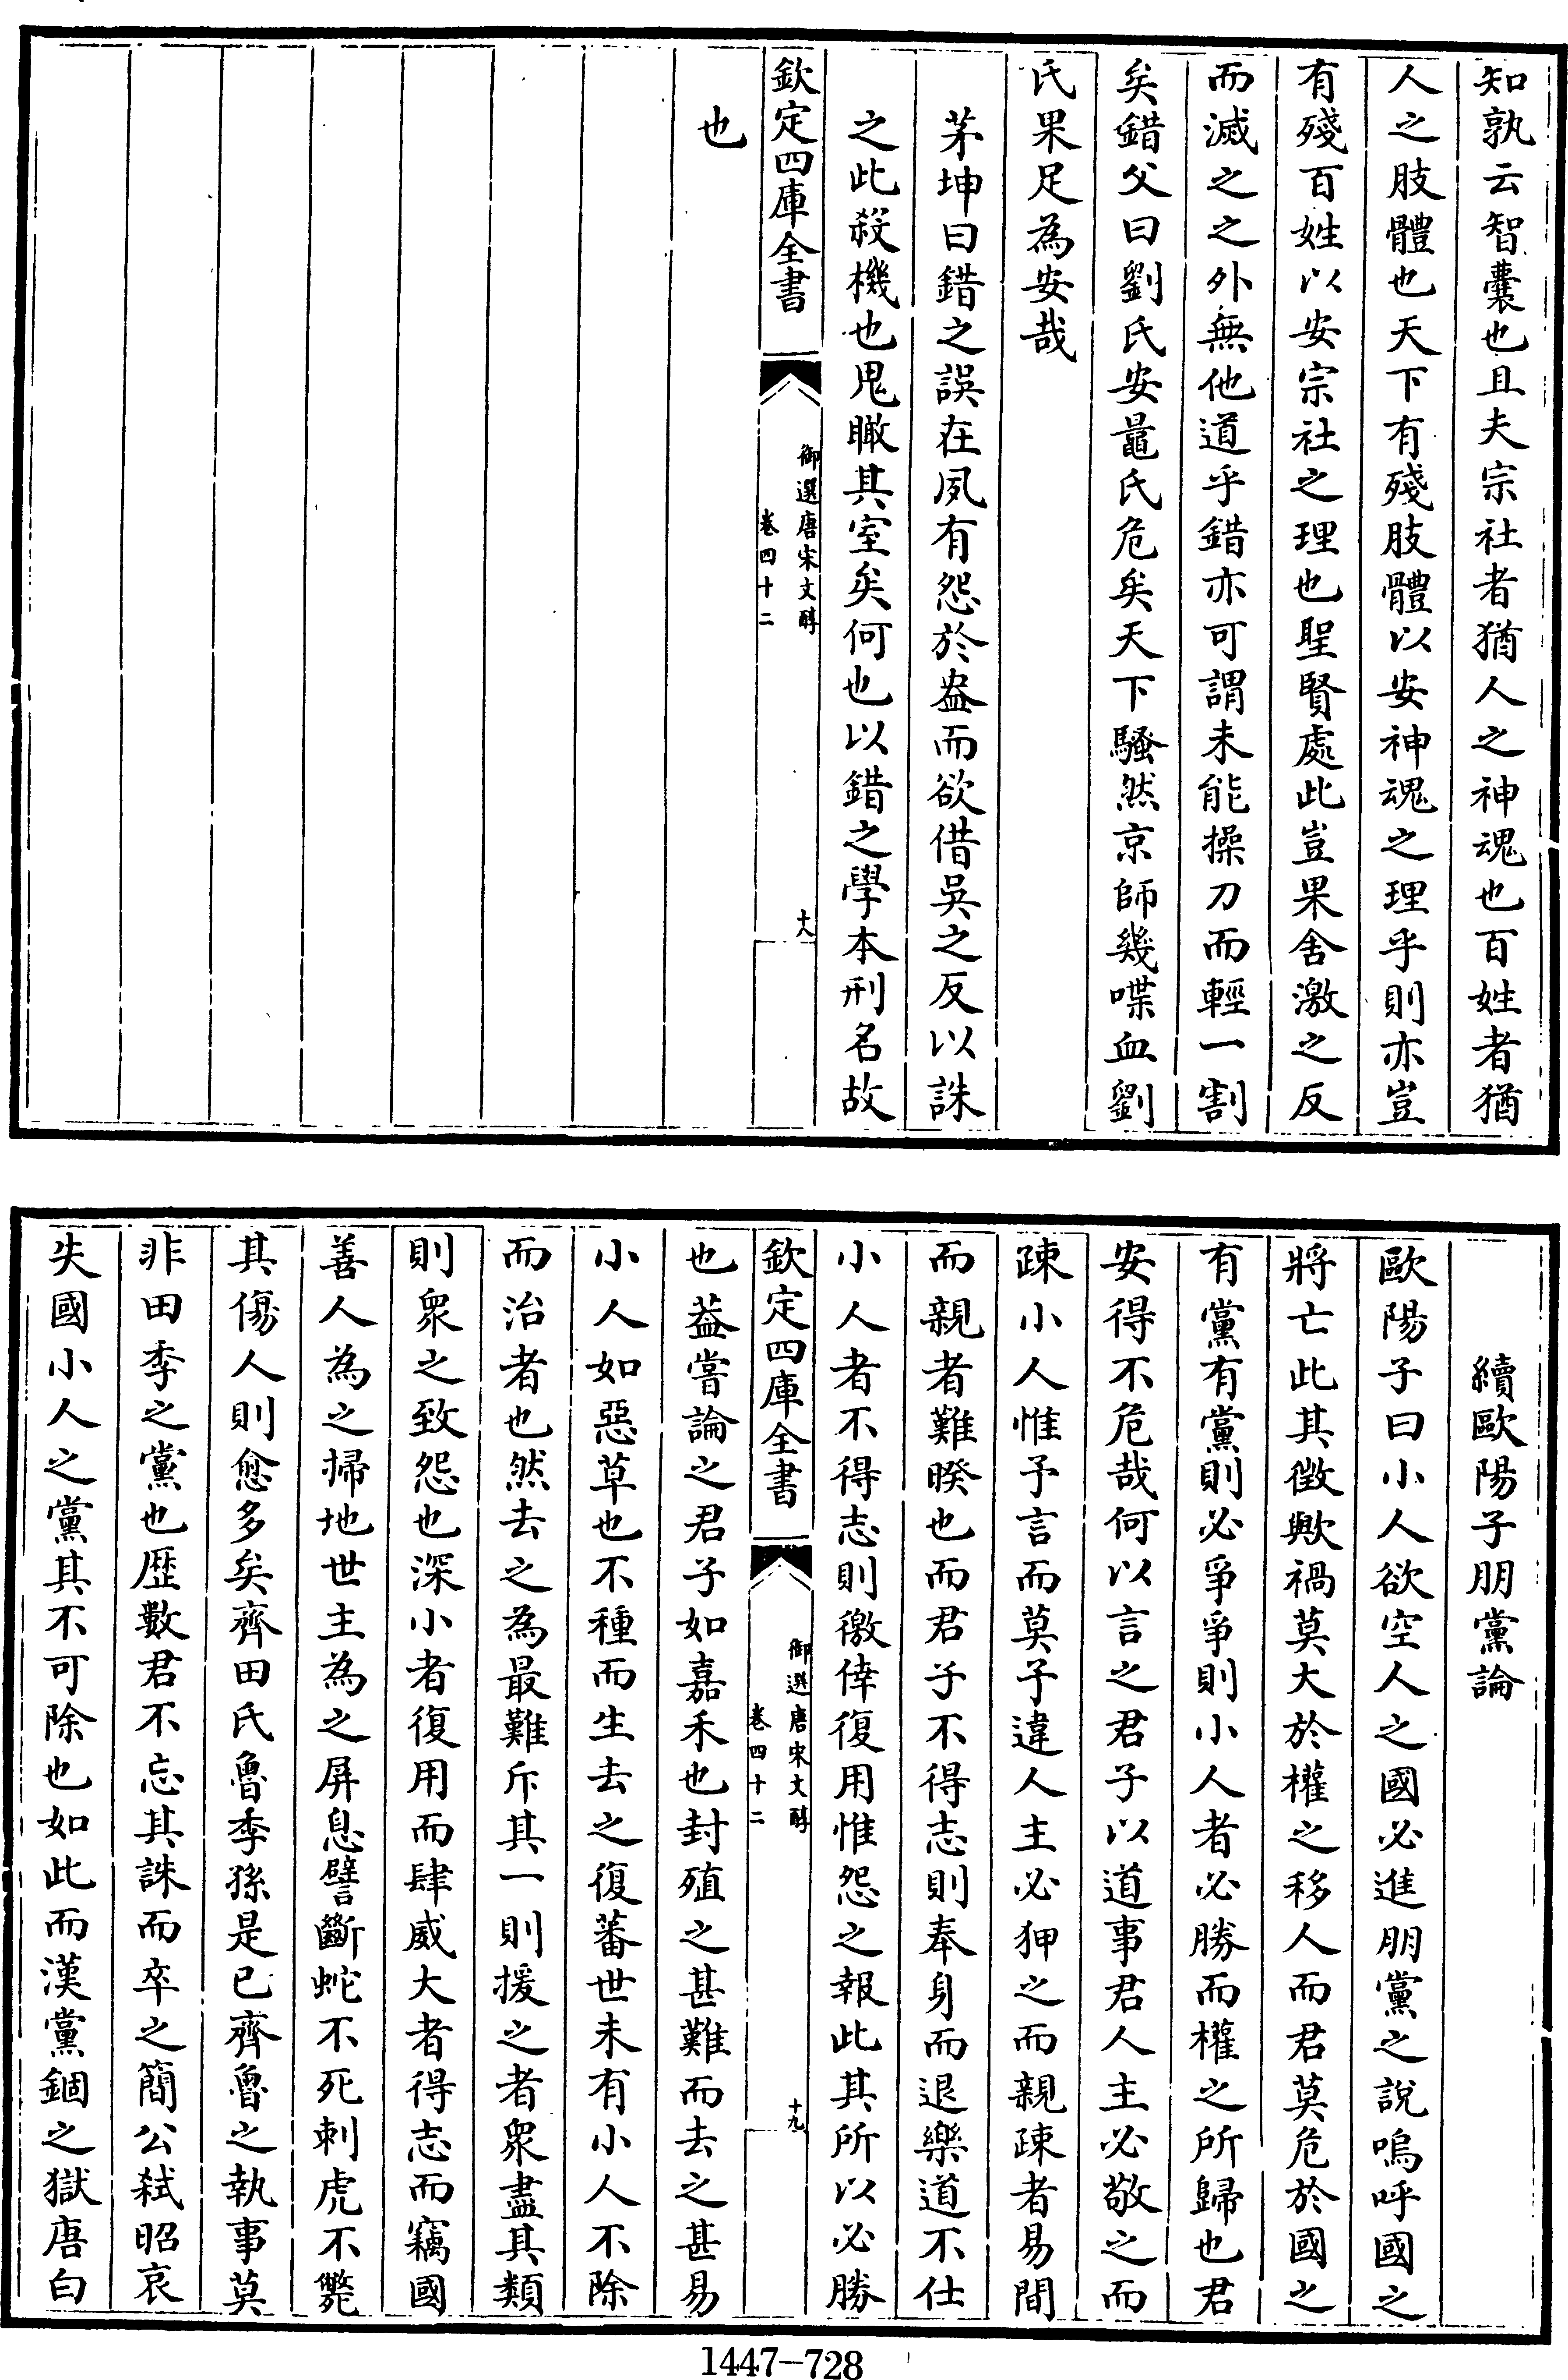 知孰云智囊也且夫宗社者猶人之神魂也百姓者猶
人之肢體也天下有殘肢體以安神魂之理乎則亦豈
有殘百姓以安宗社之理也聖賢處此豈果舍激之反
而滅之之外無他道乎錯亦可謂未能操刀而輕一割
矣錯父曰劉氏安鼂氏危矣天下騷然京師幾喋血劉
氏果足為安哉
茅坤曰錯之誤在夙有怨於盎而欲借吳之反以誅
之此殺機也鬼瞰其室矣何也以錯之學本刑名故
欽定四庫全書
御選唐宋文醇
卷四十二
十八
也
續歐陽子朋黨論
歐陽子曰小人欲空人之國必進朋黨之說嗚呼國之
將亡此其徵歟禍莫大於權之移人而君莫危於國之
有黨有黨則必爭爭則小人者必勝而權之所歸也君
安得不危哉何以言之君子以道事君人主必敬之而
疎小人惟予言而莫予違人主必狎之而親疎者易間
而親者難睽也而君子不得志則奉身而退樂道不仕
小人者不得志則徼倖復用惟怨之報此其所以必勝
欽定四庫全書
御選唐宋文醇
卷四十二
十九
也葢嘗論之君子如嘉禾也封殖之甚難而去之甚易
小人如惡草也不種而生去之復蕃世未有小人不除
而治者也然去之為最難斥其一則援之者衆盡其類
則衆之致怨也深小者復用而肆威大者得志而竊國
善人為之掃地世主為之屏息譬斷蛇不死刺虎不斃
其傷人則愈多矣齊田氏魯季孫是已齊魯之執事莫
非田季之黨也歷數君不忘其誅而卒之簡公弒昭哀
失國小人之黨其不可除也如此而漢黨錮之獄唐白
1447-728